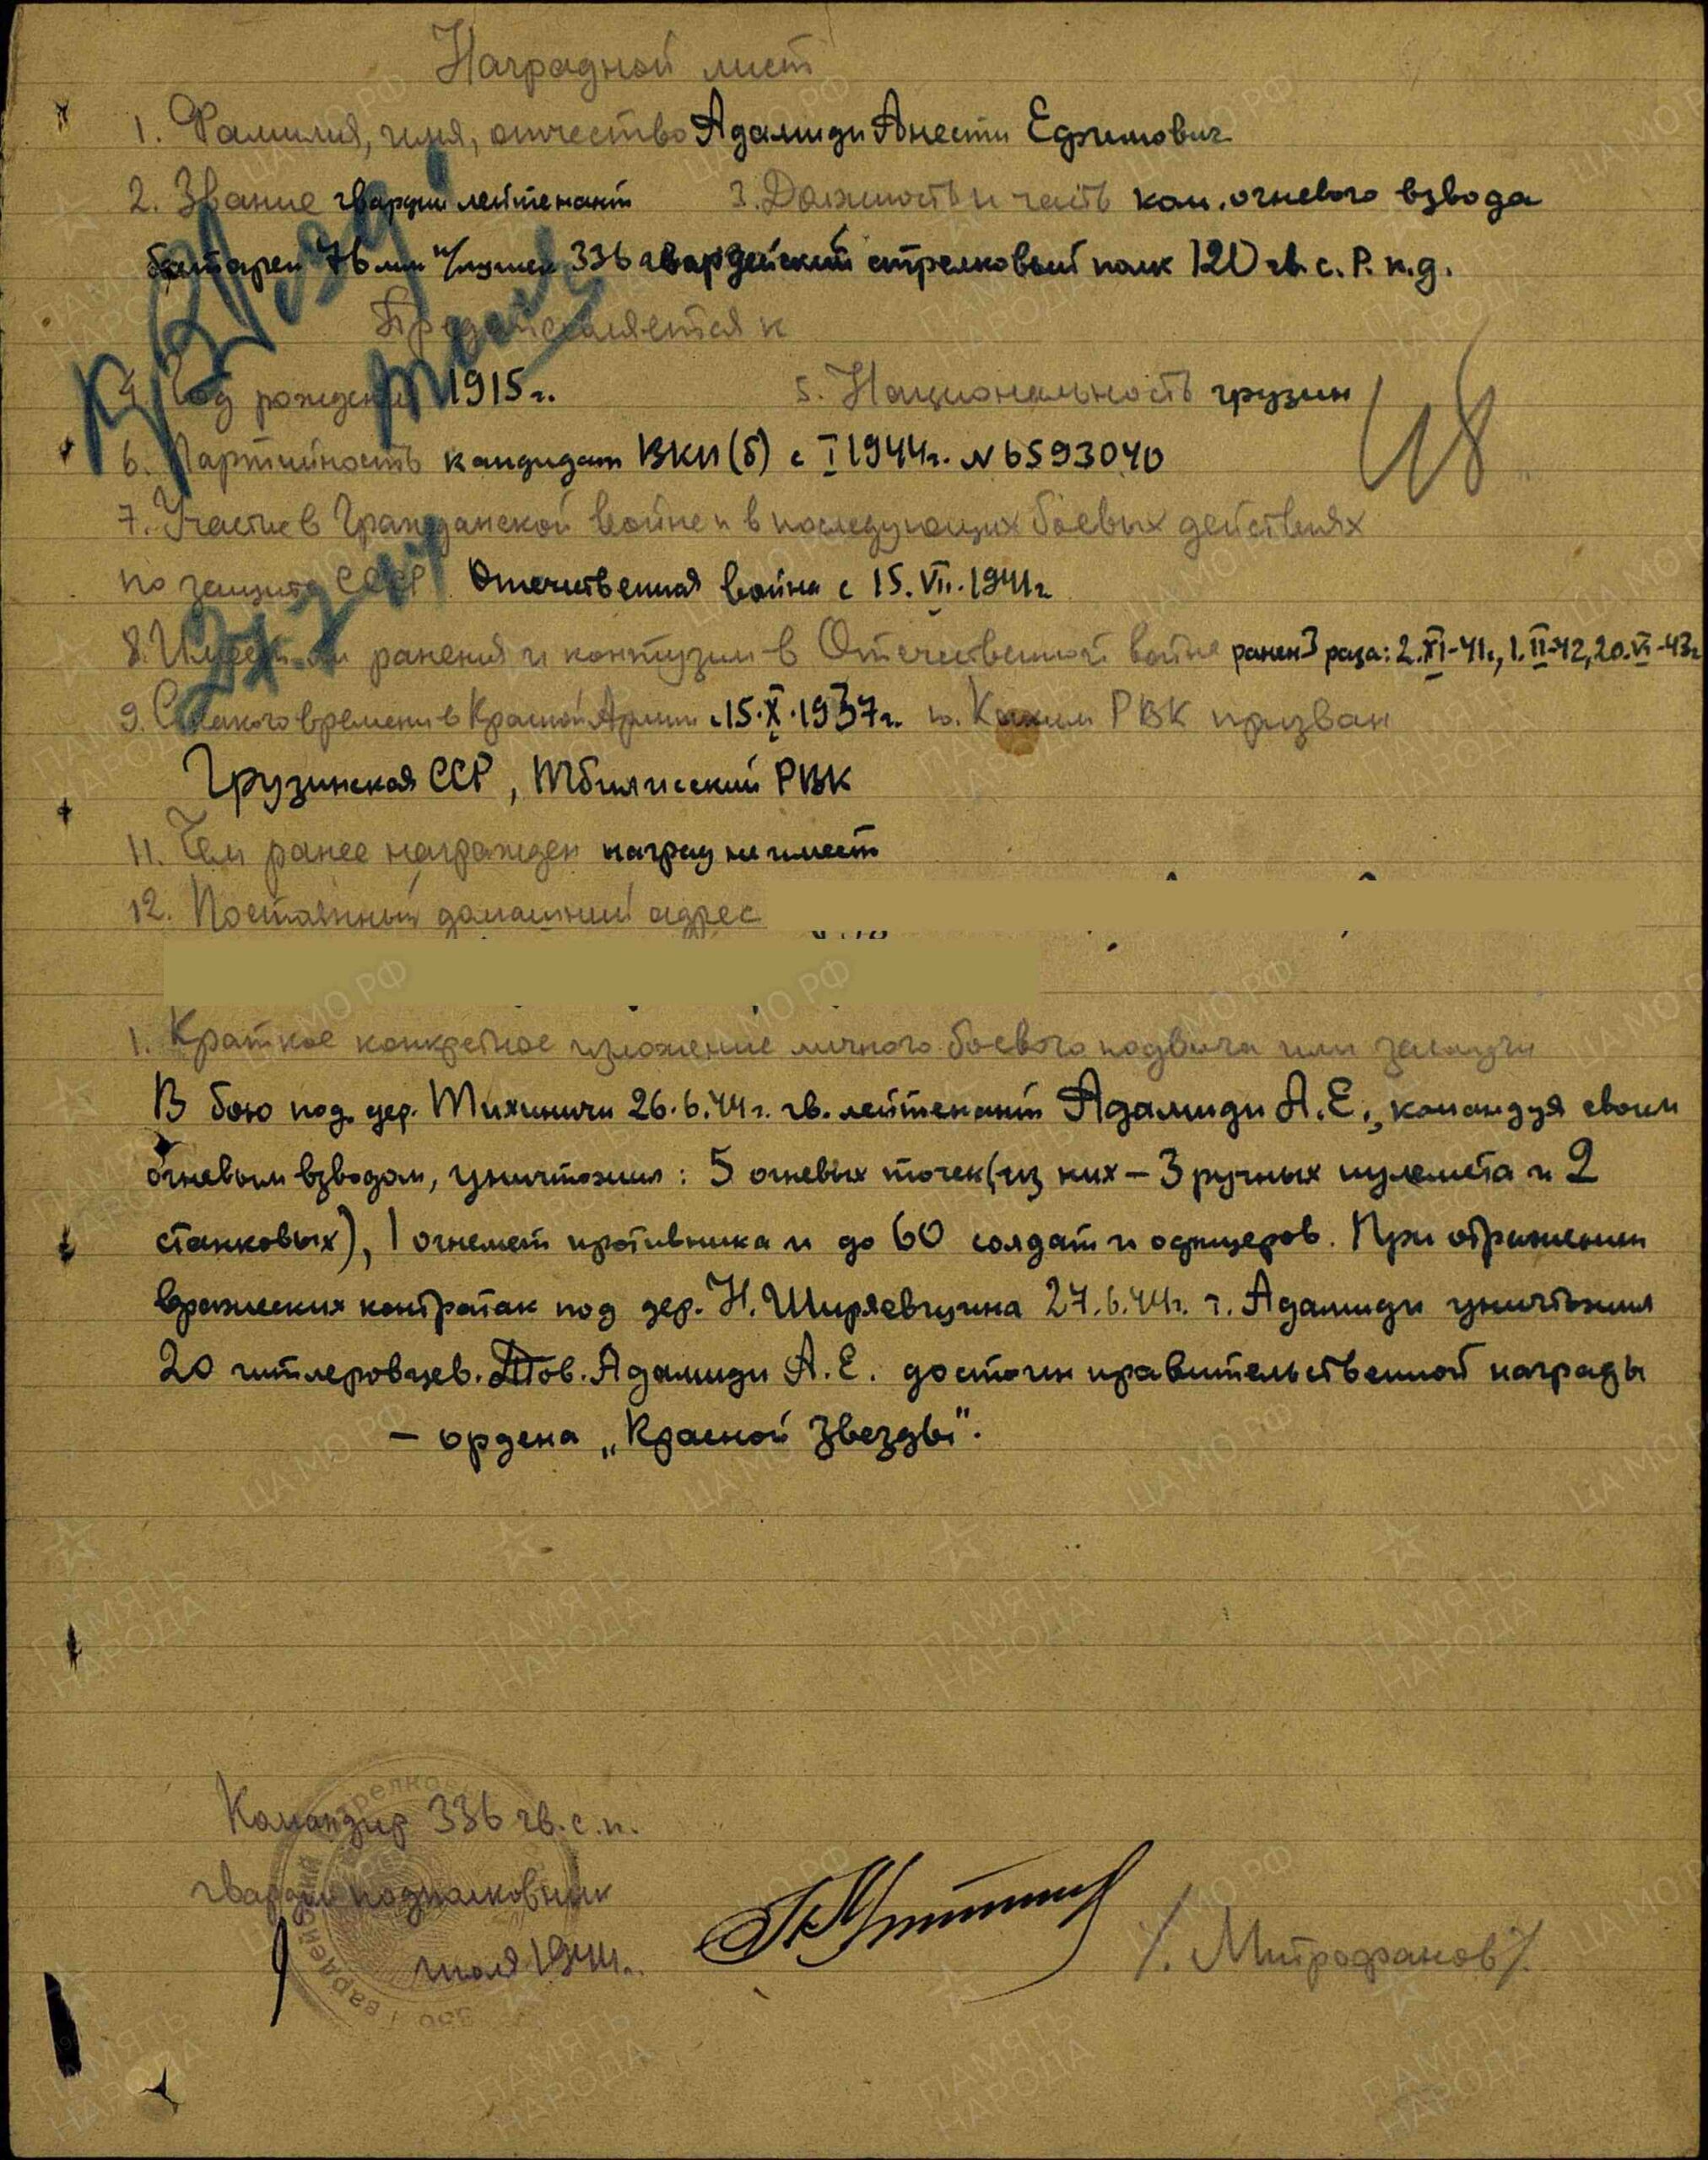 Наградной лист
1. Фамилия, имя, отчество Адамиди Анести Ефимович
2. Звание гвардии лейтенант 3. Должность и часть ком. огневого взвода
батареи 76 мм п/пушек 336 гвардейский стрелковый полк 120 гв. с. Р. к. д.
Представляется к
4. Год рождения 1915 г. 5. Национальность грузин
48
6. Партийность кандидат ВКП(б) с I 1944 г. N 6593040
7. Участие в Гражданской войне и в последующих боевых действиях
по защите СССР. Отечественная война с 15.VII.1941 г.
8. Имеет ли ранения и контузии в Отечественной войне ранен 3 раза: 2.XI-41г., 1.II-42, 20.VI-43г.
9. С какого времени в Красной Армии с 15.X.1937 г. 10. Каким РВК призван
Грузинская ССР, Тбилисский РВК
11. Чем ранее награжден наград не имеет
12. Постоянный домашний адрес
1. Краткое конкретное изложение личного боевого подвига или заслуги
В бою под дер. Тихиничи 26.6.44 г. гв. лейтенант Адамиди А.Е., командуя своим
огневым взводом, уничтожил: 5 огневых точек (из них – 3 ручных пулемета и 2
станковых), 1 огнемет противника и до 60 солдат и офицеров. При отражении
вражеских контратак под дер. Н. Ширяевщина 27.6.44 г. т. Адамиди уничтожил
20 гитлеровцев. Тов. Адамиди А.Е. достоин правительственной награды
– ордена „Красной Звезды".
Командир 336 гв. с. п.
гвардии подполковник
/. Митрофанов/.
июля 1944 г.